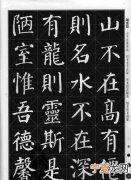 山不在高有
則名水不在深
有龍則靈斯是
陋室惟吾德馨